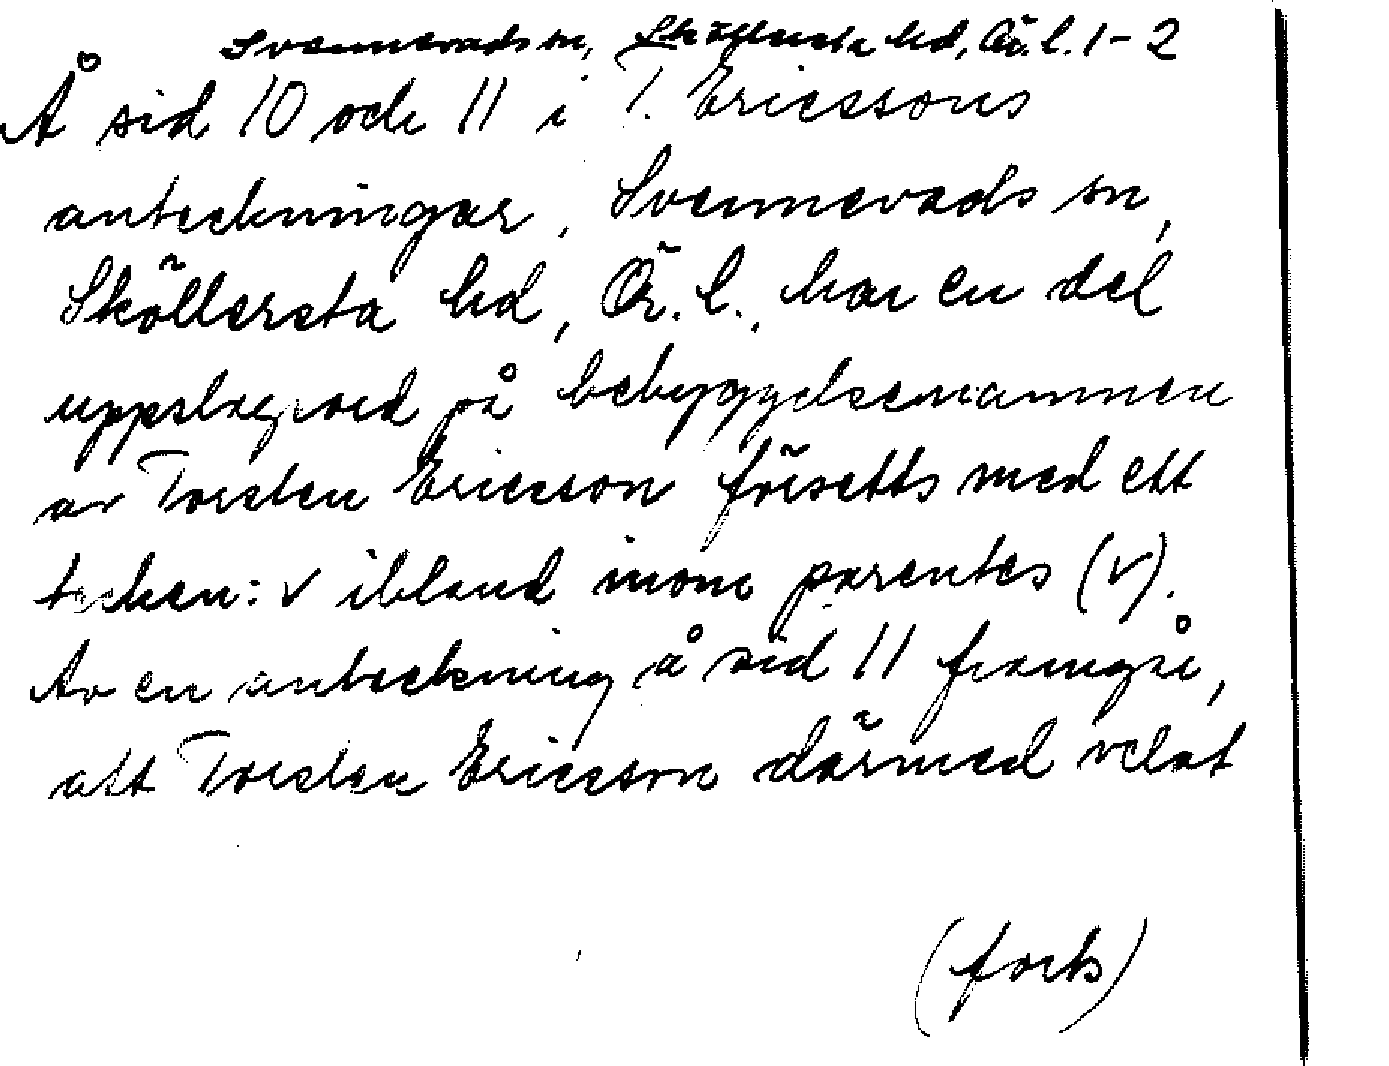 Svennevads sn, Sköllersta hd, Ör. l. 1-2
Å sid 10 och 11 i T. Ericssons
anteckningar, Svennevads sn,
Sköllersta hd, Ör. l., har en del
uppslagsord på bebyggelsenamnen
av Torsten Ericsson försetts med ett
tecken: v ibland inom parentes (v).
Av en anteckning å sid 11 framgår,
att Torsten Ericsson därmed velat
(forts)